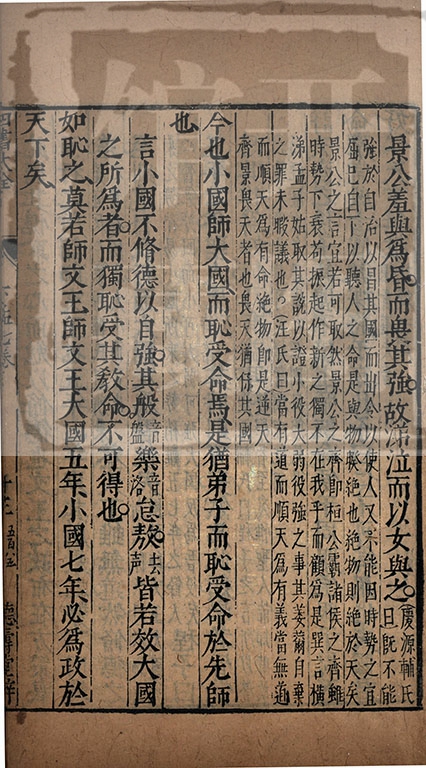 景公羞與爲昏而畏其強故涕泣而以女與之慶源輔氏
曰既不能
強於自治以昌其國而出令以使人又不能因時勢之宜
屈己自下以聽人之命是與物睽絶也絶物則絶於天矣
景公之言宜若可取然景公之齊即桓公霸諸侯之齊雖
時勢下衰苟振起作新之獨不在我乎而顧爲是巽言橫
涕孟子姑取其說以證小役大弱役強之事其委薾自棄
之罪未暇議也○汪氏曰當有道而順天爲有義當無道
而順天爲有命絶物卽是逆天
齊景畏天者也畏天猶保其國
今也小國師大國而恥受命焉是猶弟子而恥受命於先師
也
言小國不脩德以自強其般音盤樂音洛怠敖去聲皆若效大國
之所爲者而獨恥受其教命不可得也
如恥之莫若師文王師文王大國五年小國七年必爲政於
天下矣
四書大全
德壽堂梓